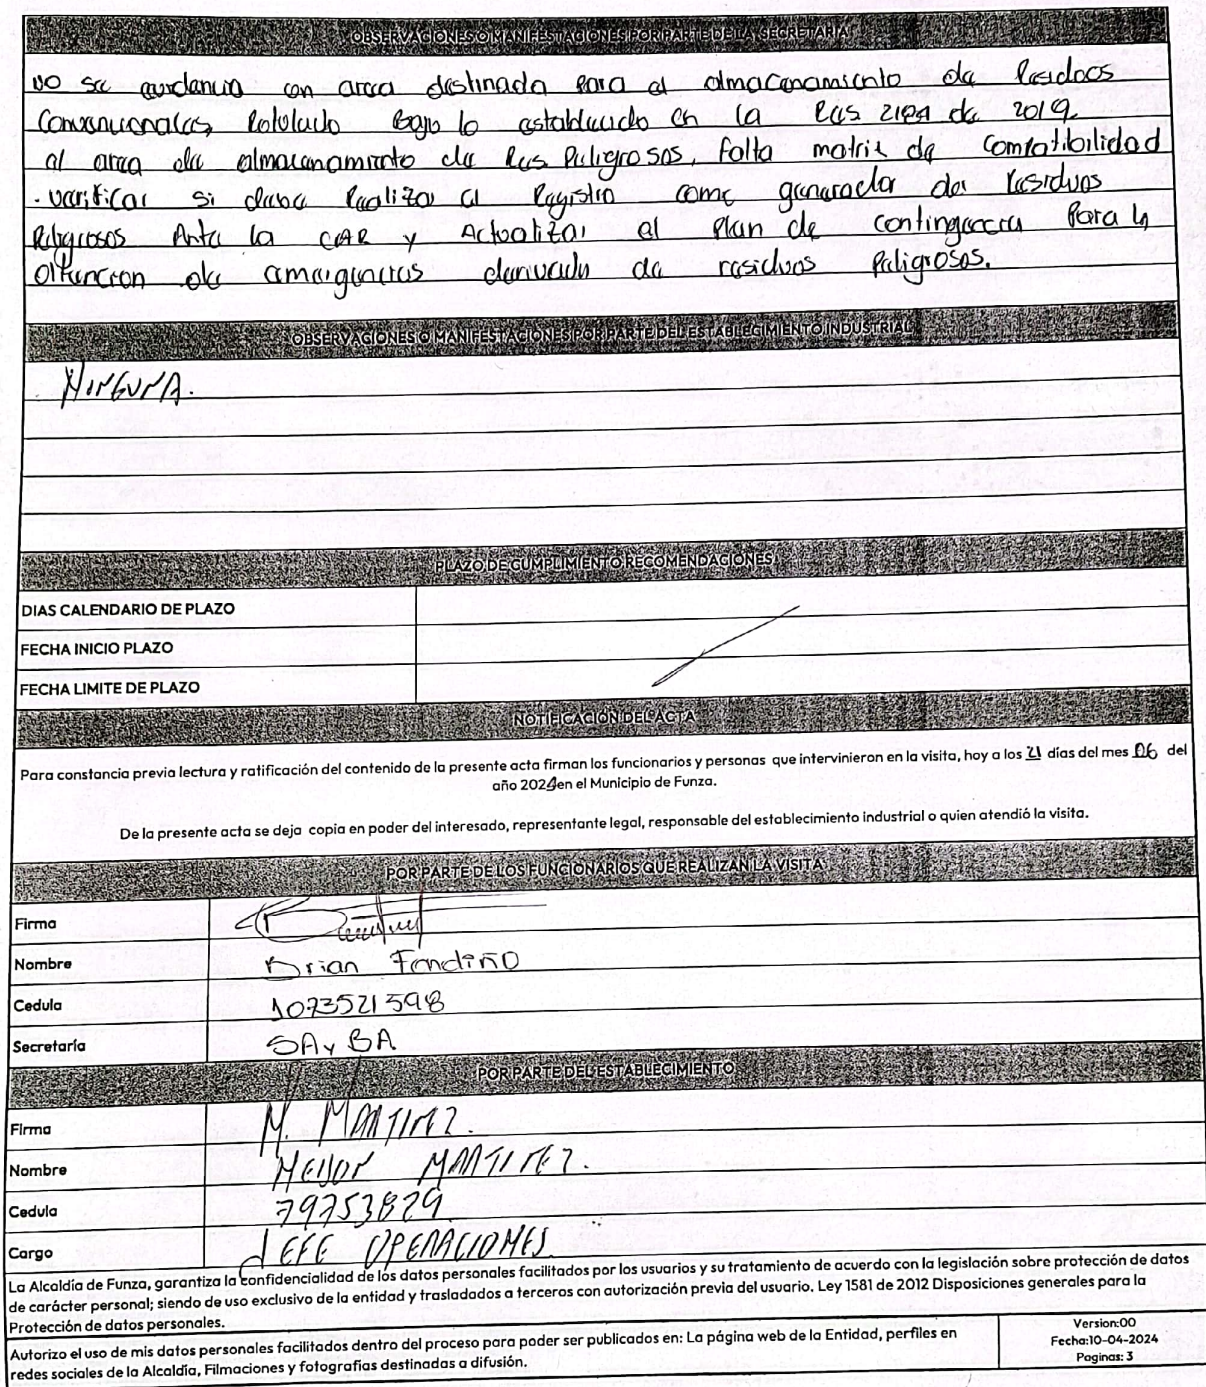 OBSERVACIONES O MANIFESTACIONES POR PARTE DE LA SECRETARIA
NO se evidencia con area destinada para el almacenamiento de Residuos
Convencionales, Rotulado Bajo lo establecido en la Res 2184 de 2019.
al area de almacenamiento de Res Peligrosos, falta matriz de Compatibilidad
. verificar si debe Realizar el Registro como generador de Residuos
Peligrosos Ante la CAR y Actualizar el Plan de contingencia Para la
atencion de emergencias derivado de residuos Peligrosos.
OBSERVACIONES O MANIFESTACIONES POR PARTE DEL ESTABLECIMIENTO INDUSTRIAL
NINGUNA.
PLAZO DE CUMPLIMIENTO RECOMENDACIONES
DIAS CALENDARIO DE PLAZO
FECHA INICIO PLAZO
FECHA LIMITE DE PLAZO
NOTIFICACIÓN DEL ACTA
Para constancia previa lectura y ratificación del contenido de la presente acta firman los funcionarios y personas que intervinieron en la visita, hoy a los 21 días del mes 06 del
año 2024 en el Municipio de Funza.
De la presente acta se deja copia en poder del interesado, representante legal, responsable del establecimiento industrial o quien atendió la visita.
POR PARTE DE LOS FUNCIONARIOS QUE REALIZAN LA VISITA
Firma
Nombre Brian Fandiño
Cedula 1073521598
Secretaría SAyBA
POR PARTE DEL ESTABLECIMIENTO
Firma M. MARTINEZ.
Nombre MARTINEZ.
Cedula 79753829
Cargo JEFE OPERACIONES
La Alcaldía de Funza, garantiza la confidencialidad de los datos personales facilitados por los usuarios y su tratamiento de acuerdo con la legislación sobre protección de datos
de carácter personal; siendo de uso exclusivo de la entidad y trasladados a terceros con autorización previa del usuario. Ley 1581 de 2012 Disposiciones generales para la
Protección de datos personales.
Autorizo el uso de mis datos personales facilitados dentro del proceso para poder ser publicados en: La página web de la Entidad, perfiles en
redes sociales de la Alcaldía, Filmaciones y fotografías destinadas a difusión.
Version:00
Fecha:10-04-2024
Paginas: 3